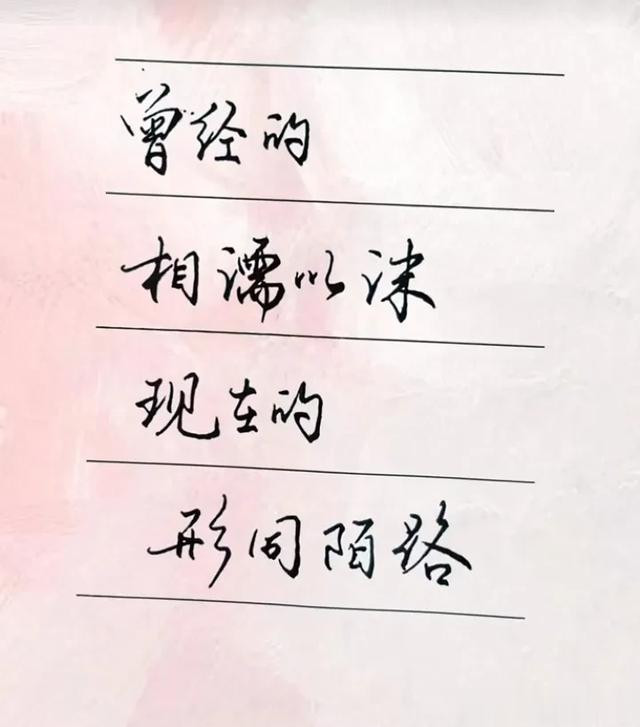 曾经的
相濡以沫
现在的
形同陌路